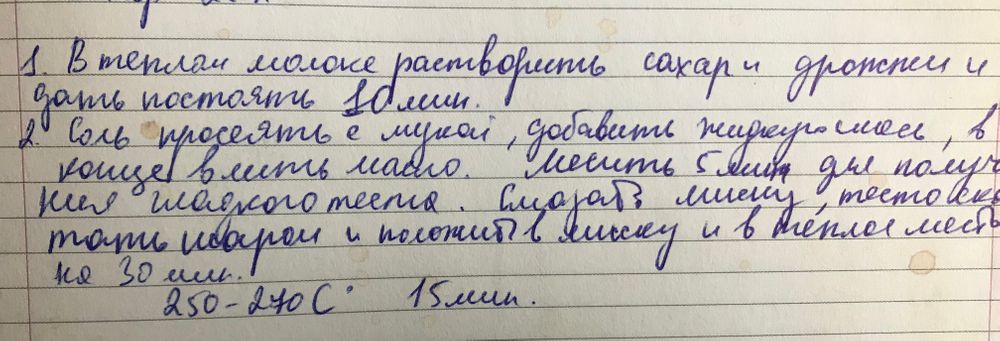 1. В теплом молоке растворить сахар и дрожжи и
дать постоять 10 мин.
2. Соль просеять с мукой, добавить жидкую смесь, в
конце влить масло. Месить 5 мин для получ
ния гладкого теста. Смазать миску, тесто ска
тать шаром и положить в миску и в теплое мест
на 30 мин.
250-270 С° 15 мин.